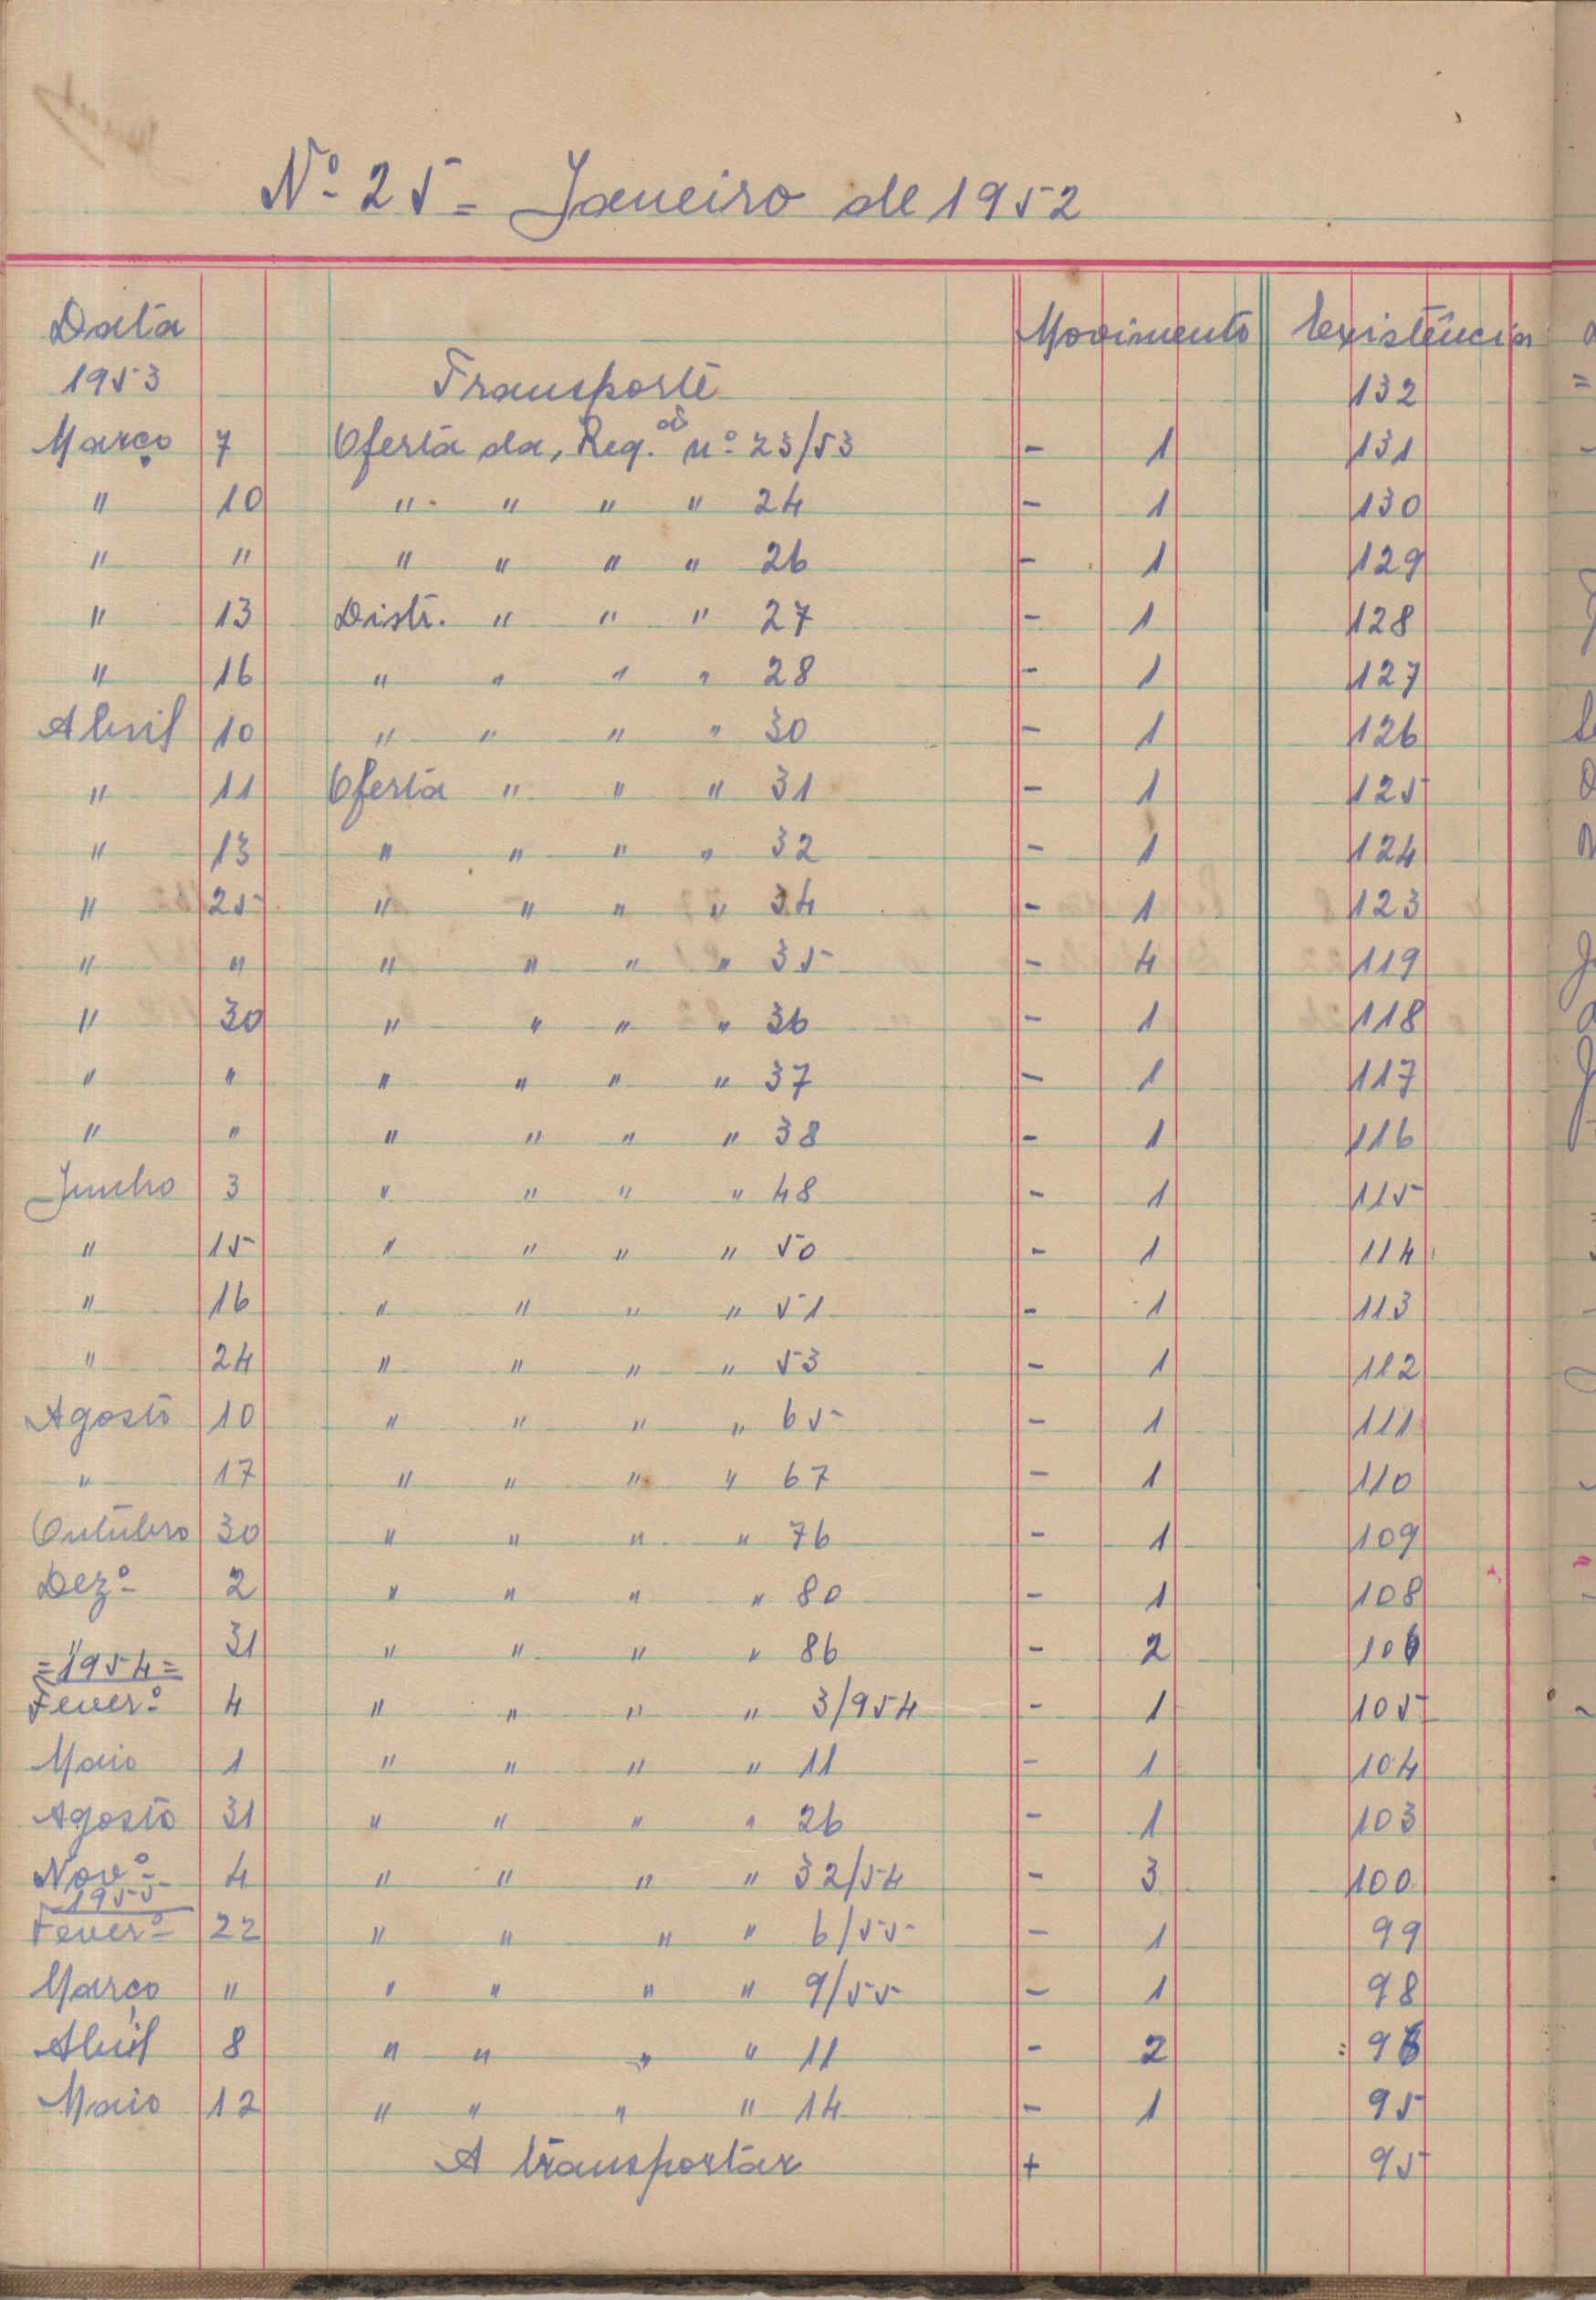 Nº 25 = Janeiro de 1952
Data Movimento Existência
1953 Transporte 132
Março 7 Oferta da, Req. nº 23/53 - 1 131
" 10 " " " " 24 - 1 130
" " " " " " 26 - 1 129
" 13 Distr. " " " 27 - 1 128
" 16 " " " " 28 - 1 127
Abril 10 " " " " 30 - 1 126
" 11 Oferta " " " 31 - 1 125
" 13 " " " " 32 - 1 124
" 25 " " " " 34 - 1 123
" " " " " " 35 - 4 119
" 30 " " " " 36 - 1 118
" " " " " " 37 - 1 117
" " " " " " 38 - 1 116
Junho 3 " " " " 48 - 1 115
" 15 " " " " 50 - 1 114
" 16 " " " " 51 - 1 113
" 24 " " " " 53 - 1 112
Agosto 10 " " " " 65 - 1 111
" 17 " " " " 67 - 1 110
Outubro 30 " " " " 76 - 1 109
Dezº 2 " " " " 80 - 1 108
" 31 " " " " 86 - 2 106
=1954=
Feverº 4 " " " " 3/954 - 1 105
Maio 1 " " " " 11 - 1 104
Agosto 31 " " " " 26 - 1 103
Novº 4 " " " " 32/54 - 3 100
1955
Feverº 22 " " " " 6/55 - 1 99
Março " " " " " 9/55 - 1 98
Abril 8 " " " " 11 - 2 96
Maio 12 " " " " 14 - 1 95
A transportar + 95